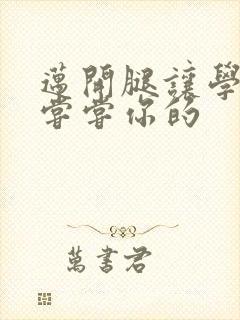 邁開腿讓學
嘗嘗你的
萬書君